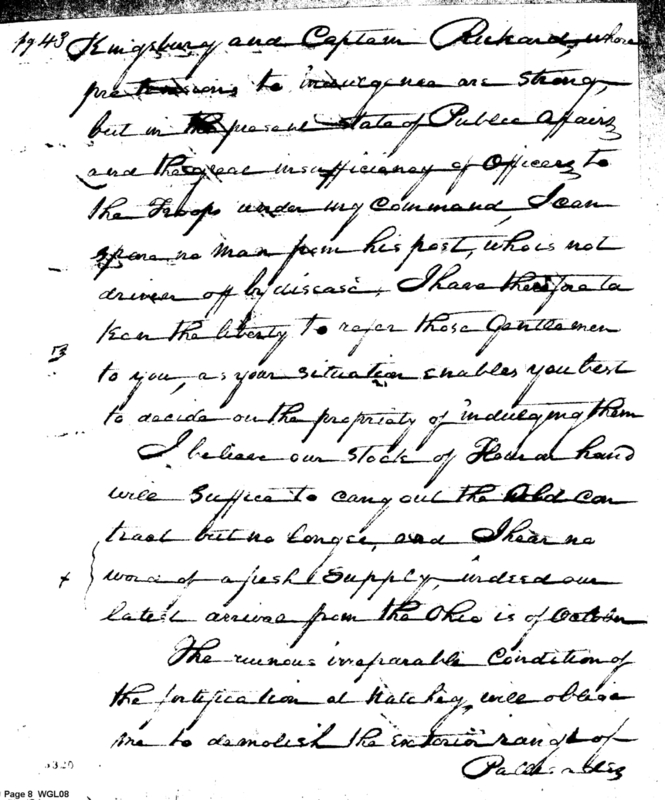 pg 43 Kingsbury and Captain Rickard, whose
pretensions to indulgence are strong,
but in the present state of Public Affairs
and the great insufficiency of Officers to
the Troops under my Command, I can
spare no man from his post, who is not
driven off by disease, I have therefore ta
ken the liberty to refer those Gentlemen
to you, as your situation enables you best
to decide on the propriety of indulging them
I believe our Stock of Flour on hand
will Suffice to carry out the Old Con
tract but no longer, and I hear no
word of a fresh Supply, indeed our
latest arrival from the Ohio is of October
The ruinous irreparable Condition of
the fortification at Natchez, will oblige
me to demolish the exterior range of
Palisades
Page 8 WGL08